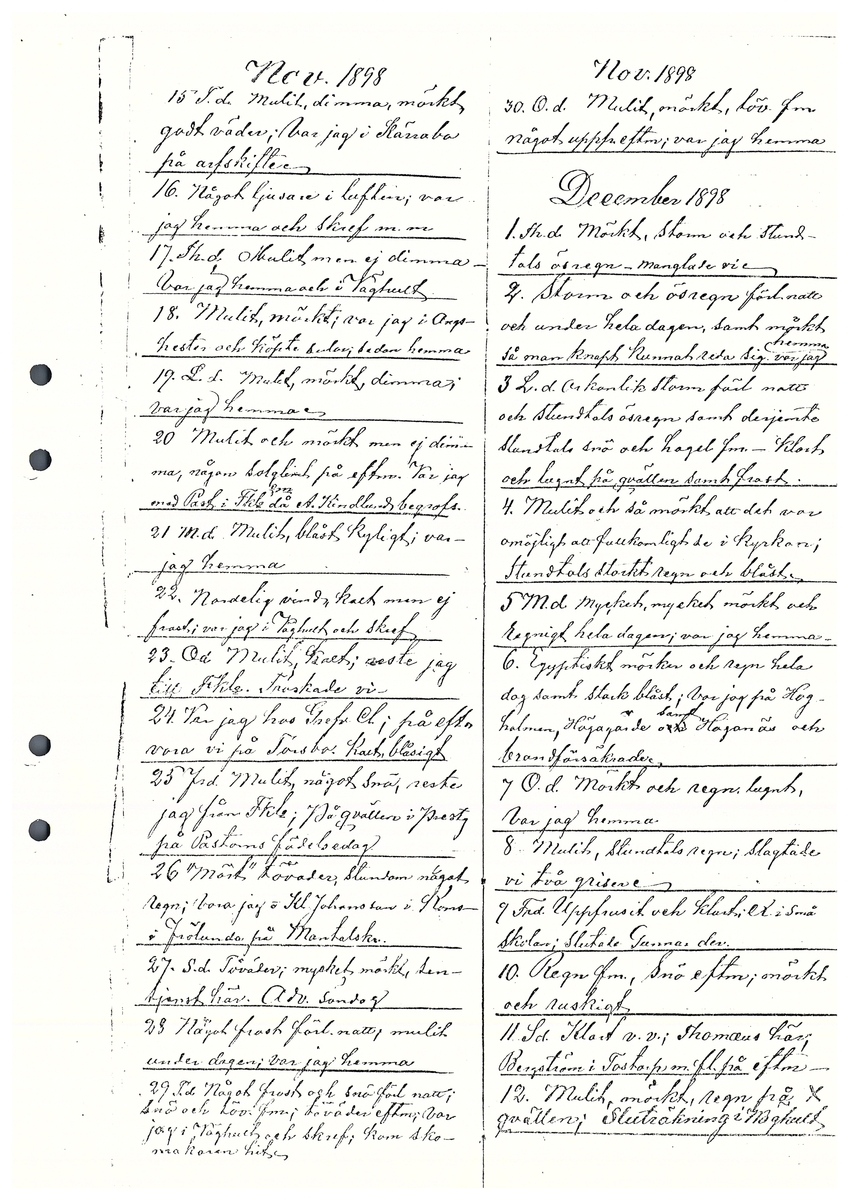 Nov. 1898
15 T.d. Mulit, dimma, mörkt
godt väder; var jag i Kärrabo
på arfskifte
16. Något ljusare i luften; var
jag hemma och skref m.m
17. Th.d. Mulit men ej dimma
Var jag hemma och i Våghult
18. Mulit, mörkt; var jag i
och köpte sedan hemma
19. L.d. Mulit, mörkt, dimma;
var jag hemma
20 Mulit och mörkt men ej dim-
ma, någon solglimt på eftm. Var jag
med Past i Fkle då A. Kindlund begrofs.
21 M.d. Mulit, blåst kyligt; var
jag hemma
22. Nordelig vind, kallt men ej
frost; var jag i Våghult och skref
23. Od Mulit, kallt; reste jag
till Fkle. Tröskade vi
24. Var jag hos Grefv. Cl; på eftm
vora vi på Torsbo. Kallt blåsigt
25 Frd. Mulit, något snö, reste
jag från Fkle; På qvällen i Prestg
på Pastorns födelsedag
26 "Mört" töväder, stundom något
regn; vora jag o Kl Johansson i
o Frölunda på Mantalskr.
27. S.d. Töväder; mycket mörkt, ten-
tjenst här. Adv. söndag
28 Något frost förl. natt; mulit
under dagen; var jag hemma
29. T.d Något frost och snö förl natt;
snö och töv. fm.; töväder eftm; var
jag i Våghult och skref; kom sko-
makaren hit
Nov. 1898
30. O.d. Mulit, mörkt, töv. fm
något uppfr eftm; var jag hemma
December 1898
1. Th.d Mörkt, storm och stund-
tals ösregn - manglade vi
2. Storm och ösregn förl. natt
och under hela dagen, samt mörkt
så man knapt kunnat reda sig. var jag hemma
3 L.d. Orkanlik storm förl natt
och stundtals ösregn samt derjemte
stundtals snö och hagel fm - Klart
och lugnt på qvällen samt frost.
4. Mulit och så mörkt att det var
omöjligt att fullkomligt se i kyrkan;
Stundtals starkt regn och blåst
5 M.d Mycket, mycket mörkt och
regnigt hela dagen; var jag hemma
6. Egyptiskt mörker och regn hela
dag samt stark blåst; Var jag på Hög-
holmen, Högagärde samt Höganäs och
brandförsäkrade
7 O.d. Mörkt och regn. lugnt,
Var jag hemma
8. Mulit, stundtals regn; slagtade
vi två grisar
9 Frd. Uppfrusit och klart; Ex. i små
skolan; slutade Gunnar der.
10. Regn fm., Snö eftm; mörkt
och ruskigt
11. Sd. Klart v.v; Thomæus här;
Bergström i Tostarp m.fl. på eftm
12. Mulit, mörkt, regn på
qvällen; Sluträkning i Våghult